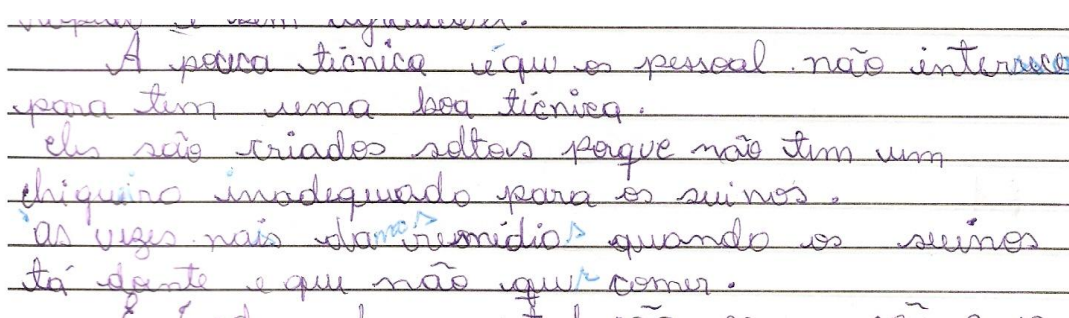 A pouca ticnica é que os pessoal não interreca
para tem uma boa ticnica.
eles são criados soltos porque não tem um
chiqueiro inadequado para os suinos.
as vezes nois damos remédios quando os suinos
tá doente e que não quer comer.